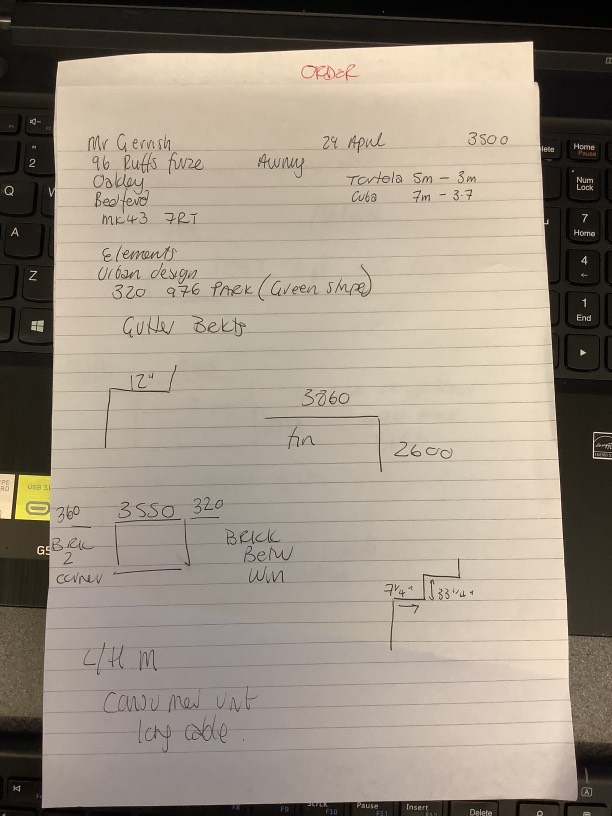 ORDER
Mr Gerrish 24 April 3500
96 Ruffs furze Awning
Oakley Tortola 5m - 3m
Bedford Cuba 7m - 3.7
MK43 7RT
Elements
Urban design
320 976 PARK (Green stripe)
Gutter Bckts
12"
3860
fin 2600
360 3550 320
BRK Brick
2 Betw
corner Win
7 1/4" 33 1/4"
L/H M
Consumer unt
long cable.
Q
A
Z
2
Home
Pause
Num
Lock
7
Home
4
1
End
F9
F10
Pause
Insert
Delete